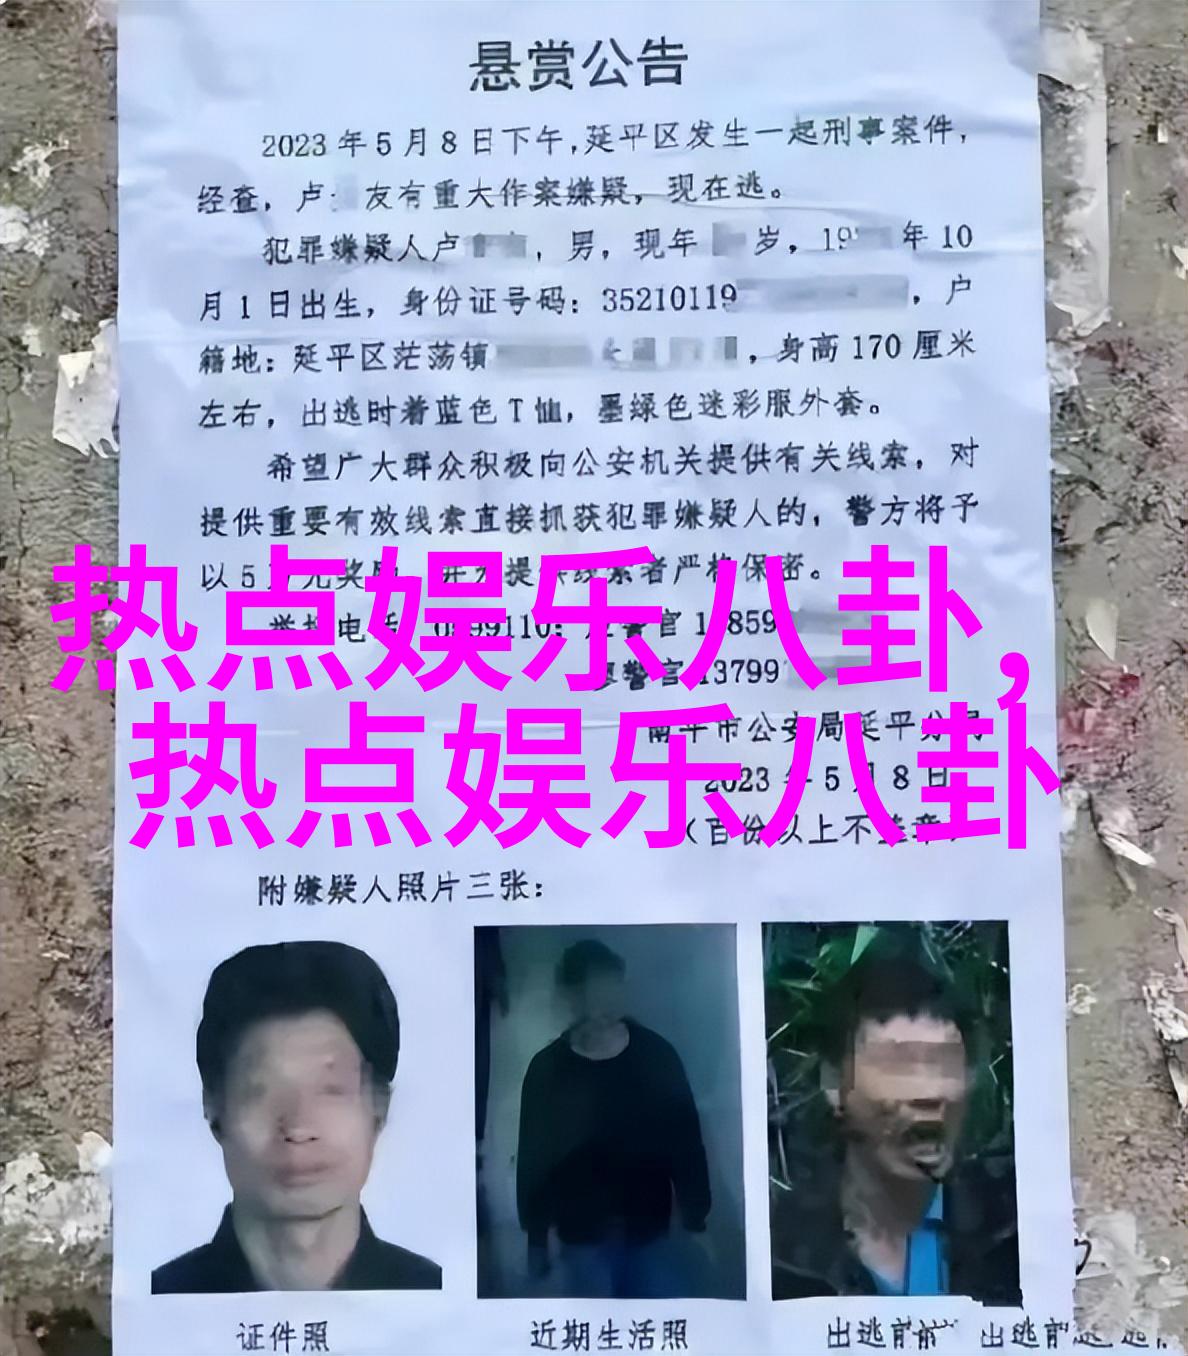 悬赏公告
2023年5月8日下午,延平区发生一起刑事案件,
经查，卢 友有重大作案嫌疑，现在逃。
犯罪嫌疑人卢 ，男，现年 岁，19 年10
月1日出生，身份证号码：35210119 ，户
籍地：延平区茫荡镇 ，身高170厘米
左右，出逃时着蓝色T恤，墨绿色迷彩服外套。
希望广大群众积极向公安机关提供有关线索，对
提供重要有效线索直接抓获犯罪嫌疑人的，警方将予
以5 元奖 提供线索者严格保密。
热点娱乐八卦，
举报电话 警官1 859
警官13799
南平市公安局延平分局
热点娱乐八卦
2023年5月8日
（百份以上不盖章）
附嫌疑人照片三张：
证件照 近期生活照 出逃前 出逃前